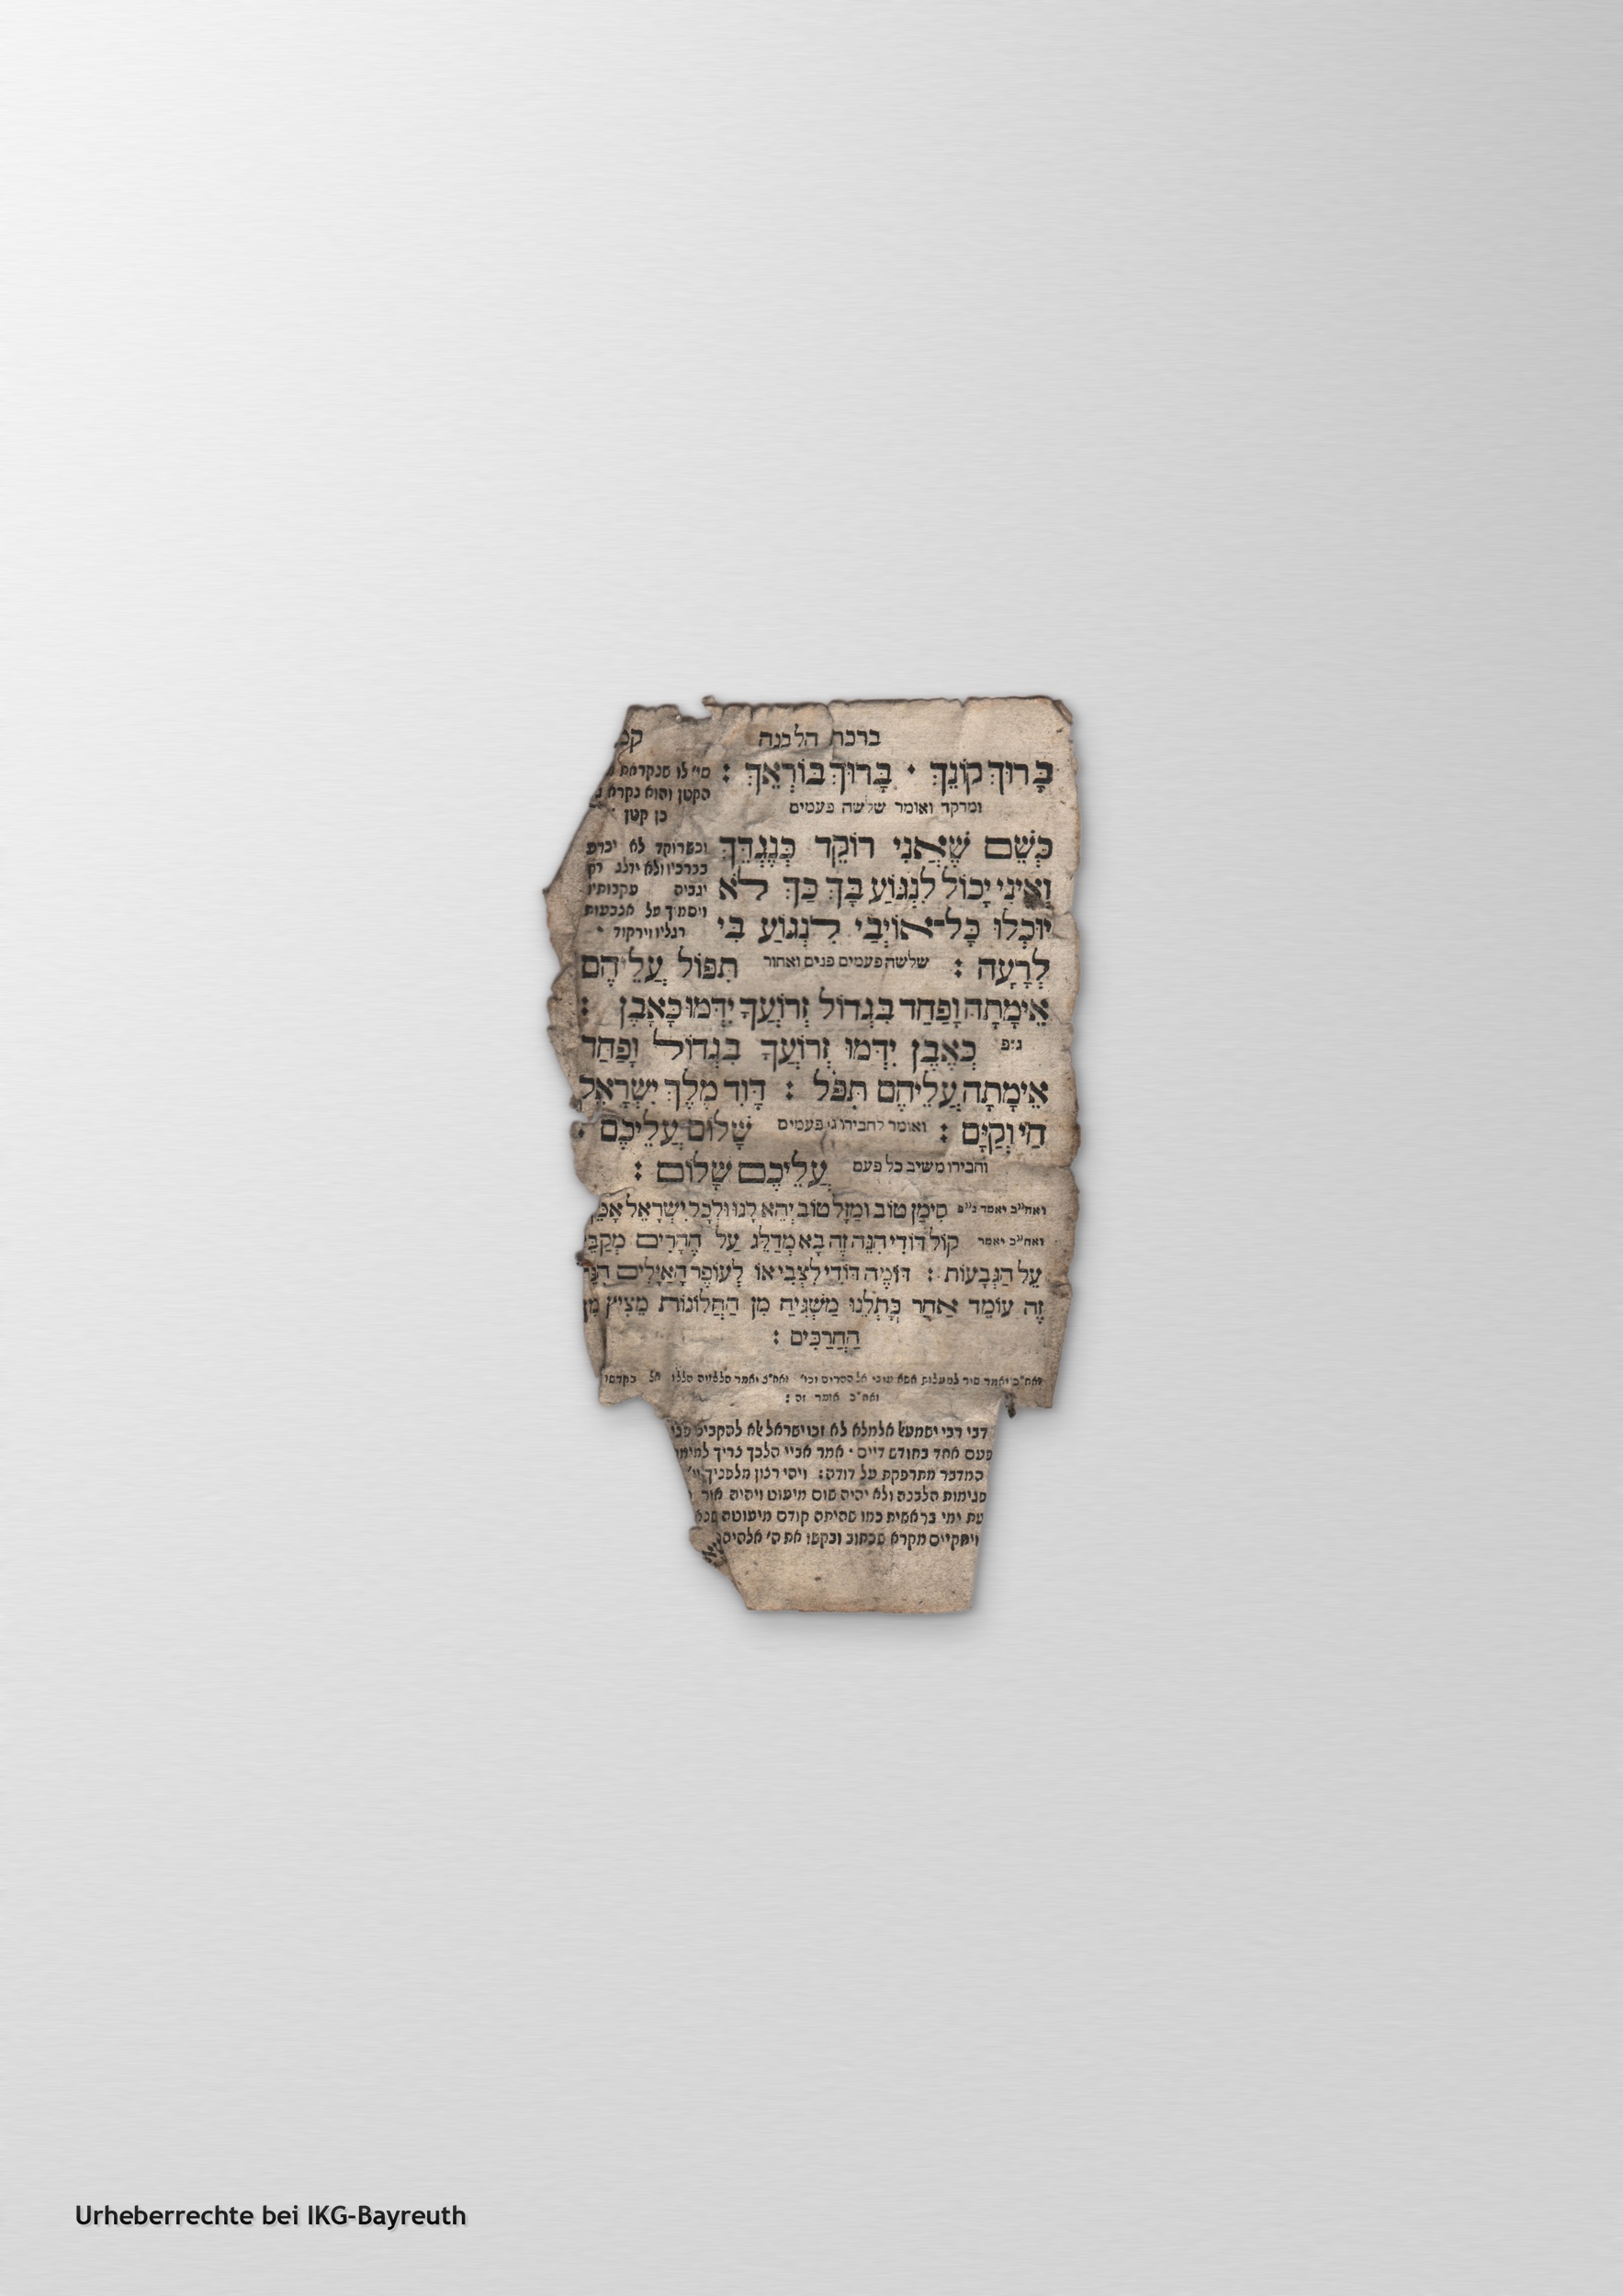 ברכת הלבנה
בָּרוּךְ קוֹנֵךְ · בָּרוּךְ בּוֹרְאֵךְ :
ומרקד ואומר שלשה פעמים
כְּשֵׁם שֶׁאֲנִי רוֹקֵד כְּנֶגְדֵּךְ
וְאֵינִי יָכוֹל לִנְגּוֹעַ בָּךְ כַּךְ לֹא
יוּכְלוּ כָּל־אוֹיְבַי לִנְגּוֹעַ בִּי
מי׳ לו שנקראת
הקטן והוא נקרא
כן קטן :
וכשרוקד לא יכרע
בברכיו ולא ידלג רק
יגביה עקבותיו
ויסמיך על אצבעות
רגליו וירקוד ·
לְרָעָה : שלשה פעמים פנים ואחור תִּפּוֹל עֲלֵיהֶם
אֵימָתָה וָפַחַד בִּגְדוֹל זְרוֹעֲךָ יִדְּמוּ כָּאָבֶן :
ג״פ כְּאֶבֶן יִדְּמוּ זְרוֹעֲךָ בִּגְדוֹל וָפַחַד
אֵימָתָה עֲלֵיהֶם תִּפֹּל : דָּוִד מֶלֶךְ יִשְׂרָאֵל
חַי וְקַיָּם : ואומר לחבירו ג׳ פעמים שָׁלוֹם עֲלֵיכֶם :
וחבירו משיב כל פעם עֲלֵיכֶם שָׁלוֹם :
ואח״כ יאמר ג״פ סִימָן טוֹב וּמַזָּל טוֹב יְהֵא לָנוּ וּלְכָל יִשְׂרָאֵל אָמֵן
ואח״כ יאמר קוֹל דּוֹדִי הִנֵּה זֶה בָּא מְדַלֵּג עַל הֶהָרִים
עַל הַגְּבָעוֹת : דּוֹמֶה דוֹדִי לִצְבִי אוֹ לְעוֹפֶר הָאַיָּלִים
זֶה עוֹמֵד אַחַר כָּתְלֵנוּ מַשְׁגִּיחַ מִן הַחֲלּוֹנוֹת מֵצִיץ מִן
הַחֲרַכִּים :
ואח״כ יאמר שיר למעלות אשא עיני אל ההרים וכו׳ ואח״כ יאמר הללויה הללו אל בקדשו
ואח״כ אומר זה :
דבי רבי ישמעאל אלמלא לא זכו ישראל אלא להקביל פני
פעם אחד בחודש דיים · אמר אביי הלכך צריך
המדבר מתרפקת על דודה : ויהי רצון מלפניך
פגימות הלבנה ולא יהיה שום מיעוט ויהיה אור
עת ימי בראשית כמו שהיתה קודם מיעוטה
ויתקיים מקרא שכתוב ובקשו את ה׳ אלהיהם
Urheberrechte bei IKG-Bayreuth